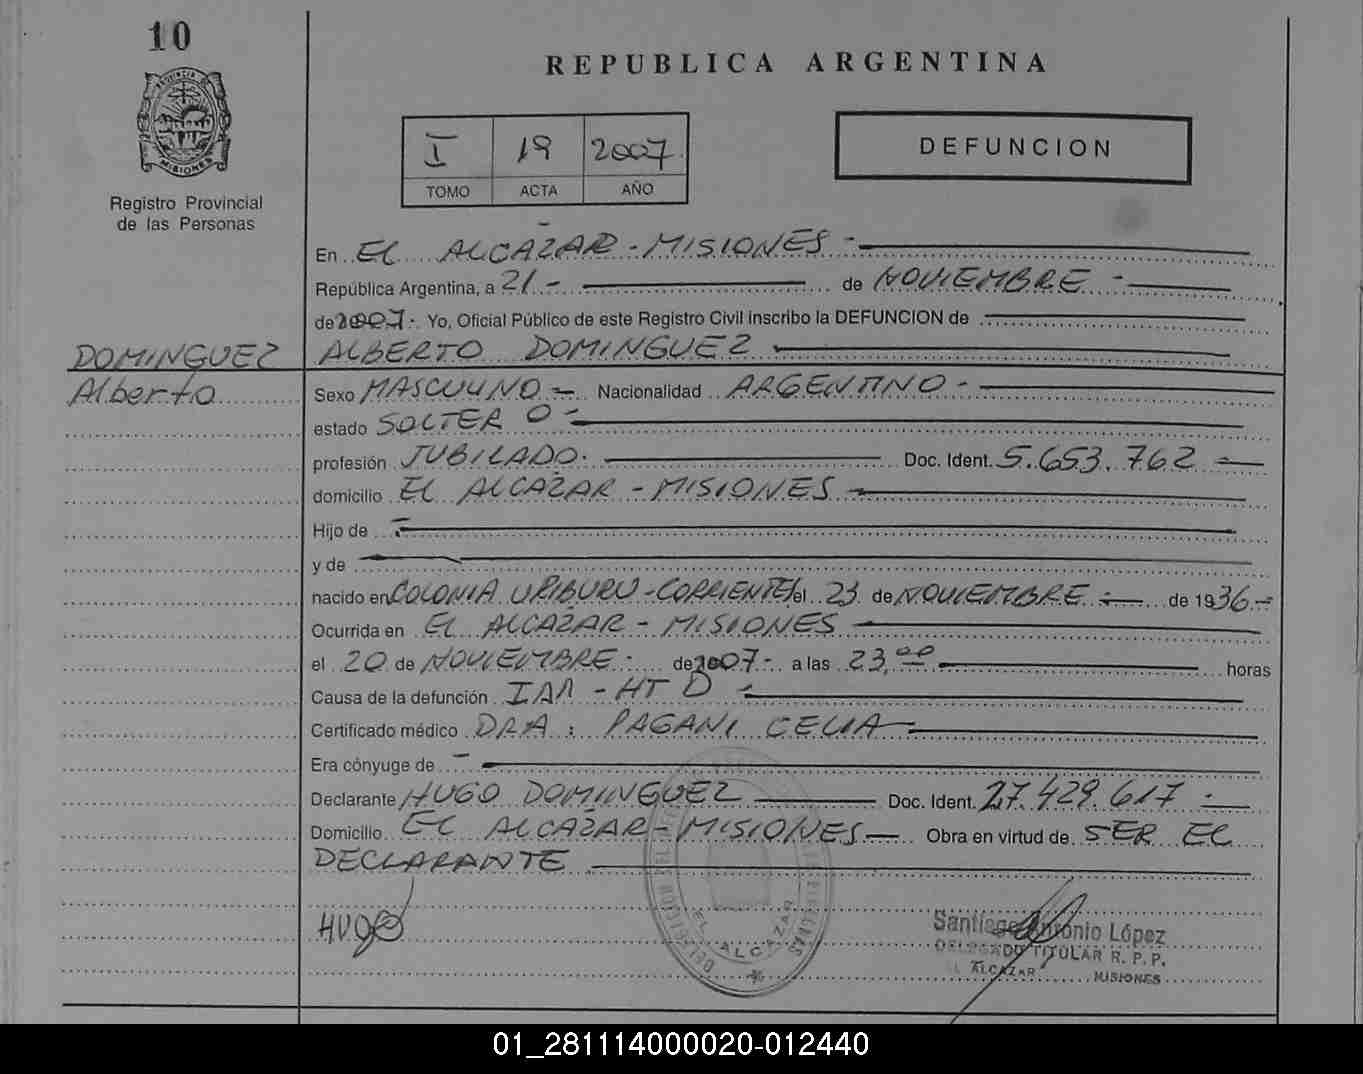 10
PROVINCIA DE
MISIONES
Registro Provincial
de las Personas
REPUBLICA ARGENTINA
I 19 2007
TOMO ACTA AÑO
DEFUNCION
En EL ALCAZAR - MISIONES -
República Argentina, a 21 - de NOVIEMBRE -
de 2007 - Yo, Oficial Público de este Registro Civil inscribo la DEFUNCION de
DOMINGUEZ ALBERTO DOMINGUEZ
Alberto
Sexo MASCULINO - Nacionalidad ARGENTINO -
estado SOLTERO -
profesión JUBILADO. Doc. Ident. 5.653.762
domicilio EL ALCAZAR - MISIONES
Hijo de -
y de
nacido en COLONIA URIBURU - CORRIENTES el 23 de NOVIEMBRE - de 1936 -
Ocurrida en EL ALCAZAR - MISIONES
el 20 de NOVIEMBRE - de 2007 - a las 23,00 horas
Causa de la defunción IAM - HTD -
Certificado médico DRA : PAGANI CELIA
Era cónyuge de -
Declarante HUGO DOMINGUEZ Doc. Ident. 27.429.617 -
Domicilio EL ALCAZAR - MISIONES - Obra en virtud de SER EL
DECLARANTE
HUGO
EL ALCAZAR
Santiago Antonio López
DELEGADO TITULAR R. P. P.
EL ALCAZAR MISIONES
01_281114000020-012440